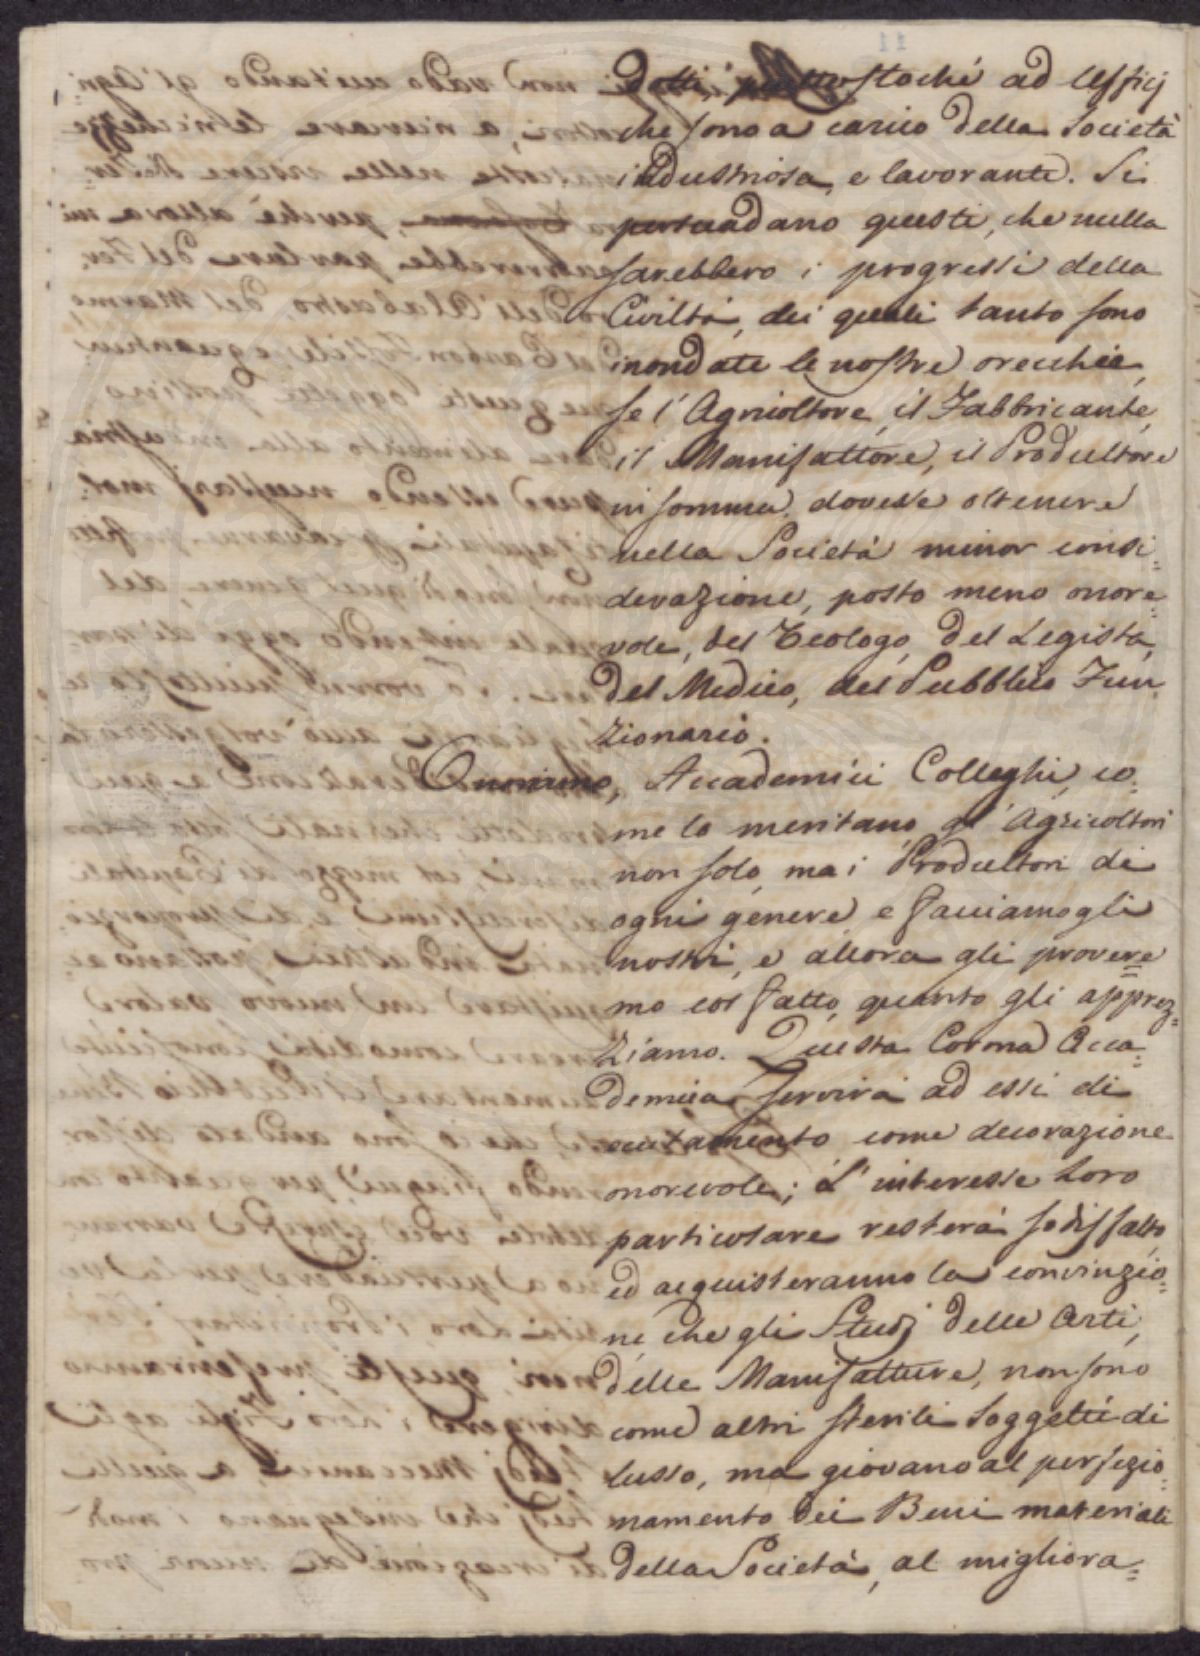 dotti, piuttostoché ad Uffici
che sono a carico della Società
industriosa, e lavorante. Si
persuadano questi, che nulla
sarebbero i progressi della
Civiltà, dei quali tanto sono
inondate le nostre orecchie,
se l'Agricoltore, il Fabbricante,
il Manifattore, il Produttore
in somma dovesse ottenere
nella Società minor consi=
derazione, posto meno onore=
vole, del Teologo, del Legista,
del Medico, del Pubblico Fun=
zionario.
Onoriamo, Accademici Colleghi, co=
me lo meritano gl'Agricoltori
non solo, ma i Produttori di
ogni genere e facciamogli
nostri, e allora gli provere=
mo col fatto, quanto gli apprez=
ziamo. Questa Corona Acca=
demica servirà ad essi di
eccitamento come decorazione
onorevole; L'interesse loro
particolare resterà sodisfatto,
ed acquisteranno la convinzio=
ne, che gli Studj delle Arti,
delle Manifatture, non sono
come altri sterili soggetti di
lusso, ma giovano al perfezio=
namento dei Beni materiali
della Società, al migliora=